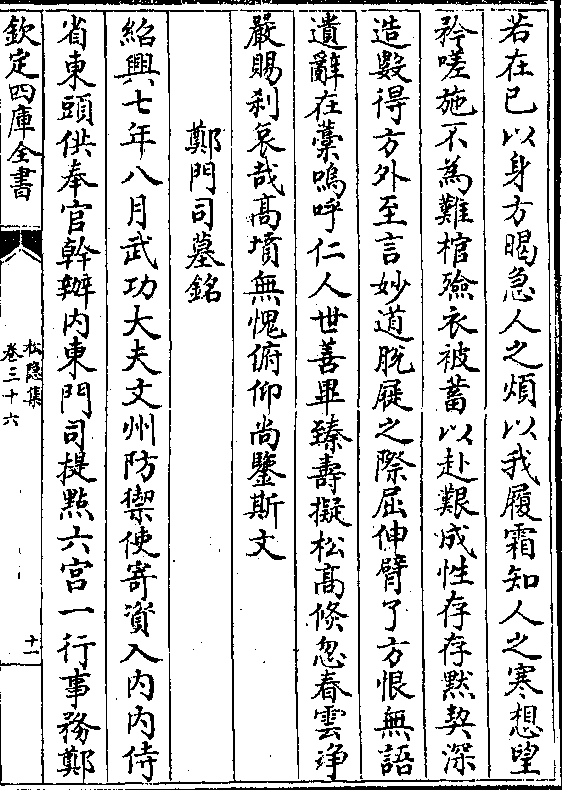 若在已以身方暍急人之煩以我履霜知人之寒想望
矜嗟施不為難棺殮衣被蓄以赴艱成性存存黙契深
造數得方外至言妙道脱屣之際屈伸臂了方恨無語
遺辭在藁嗚呼仁人世善畢臻壽擬松髙倐忽春雲諍
嚴賜刹哀哉髙墳無愧俯仰尚鑒斯文
鄭門司墓銘
紹興七年八月武功大夫文州防禦使寄資入内内侍
省東頭供奉官幹辦内東門司提點六宫一行事務鄭
欽定四庫全書
松隠集
卷三十六
十一